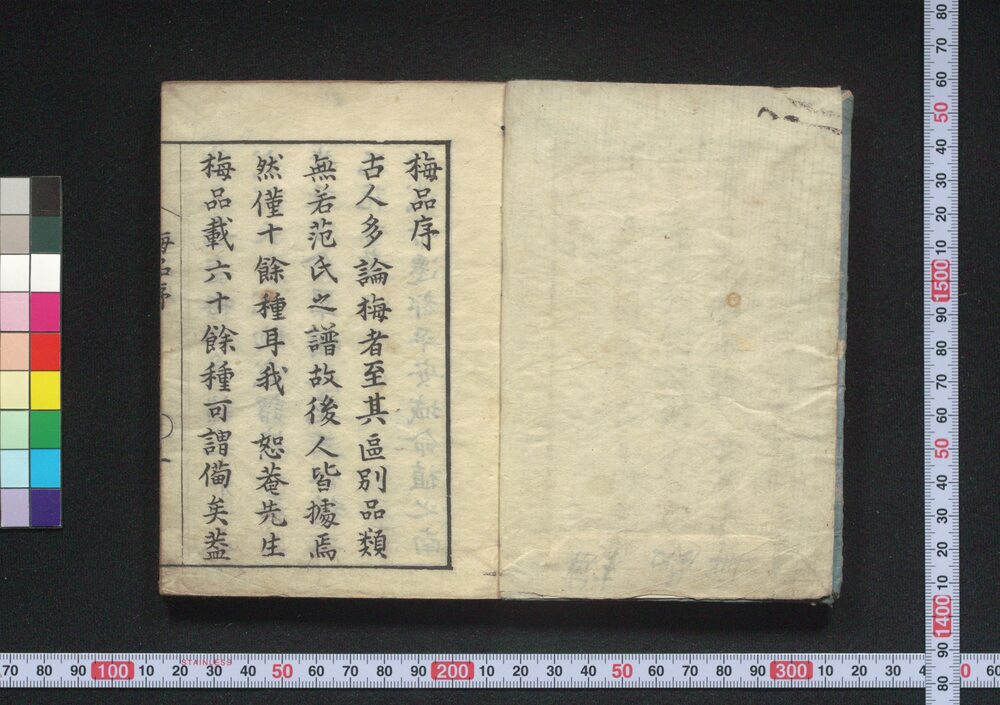 梅品序
古人多論梅者至其區別品類
無若范氏之譜故後人皆據焉
然僅十餘種耳我恕菴先生
梅品載六十餘種可謂備矣葢
梅品序
一
70 80 90 100 10 20 30 40 50 60 70 80 90 200 10 20 30 40 50 60 70 80 90 300 10 20 30 40 60
STAINLESS
80 70 60 50 40 30 20 10 1500 90 80 70 60 50 40 30 20 10 1400 90 80